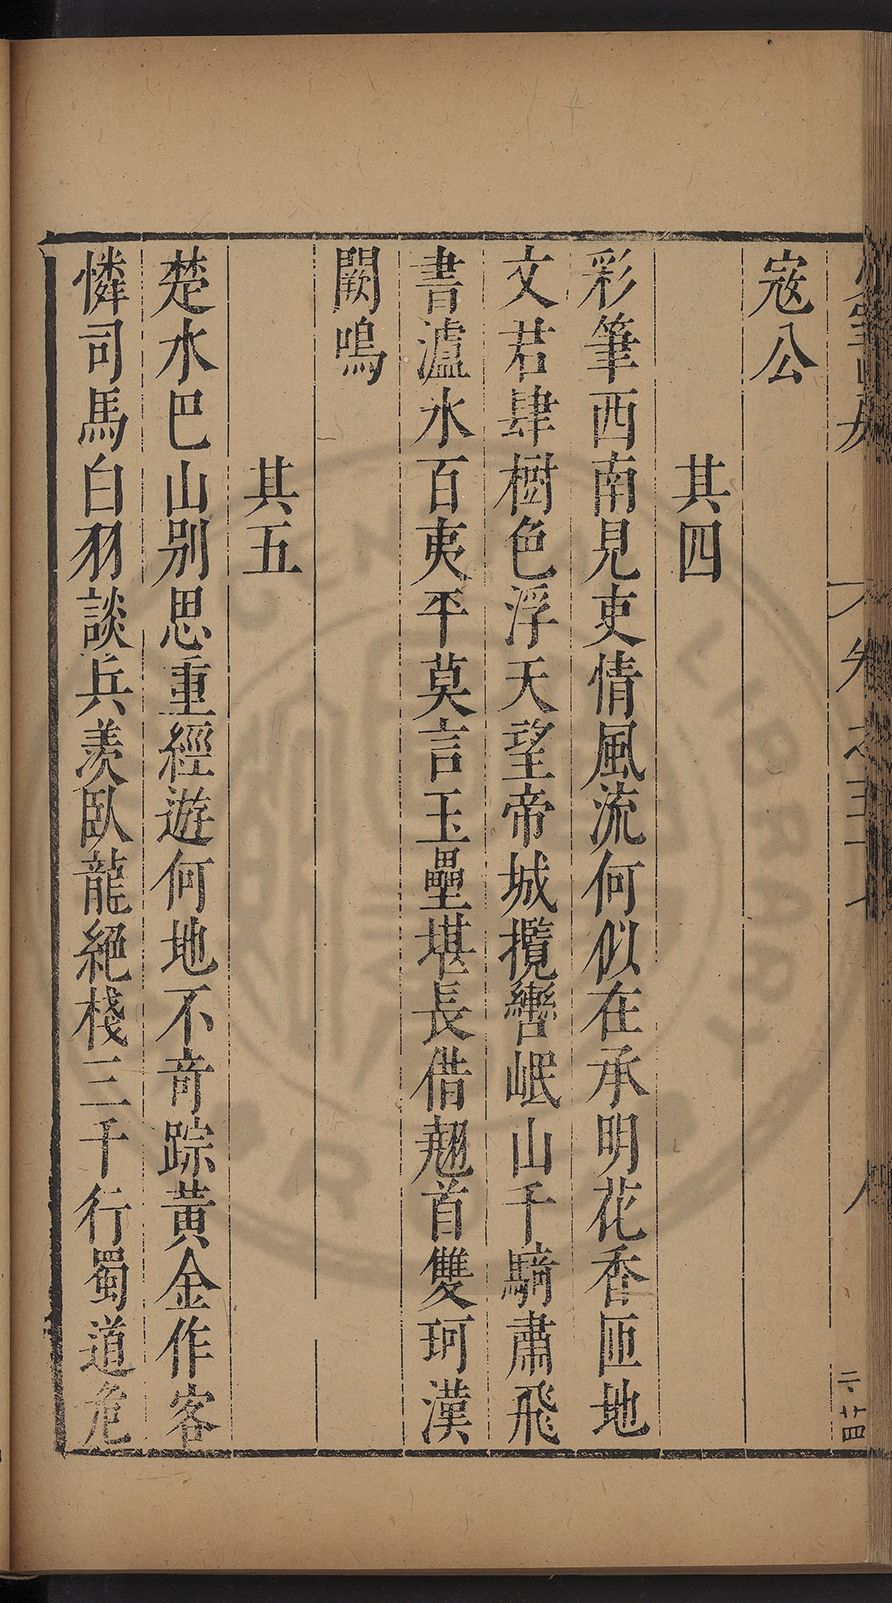 寇公
其四
彩筆西南見吏情風流何似在承明花香匝地
文君肆樹色浮天望帝城攬轡岷山千騎肅飛
書瀘水百夷平莫言玉壘堪長借翹首雙珂漢
闕鳴
其五
楚水巴山別思重經遊何地不竒踪黃金作客
憐司馬白羽談兵羨臥龍絕棧三千行蜀道危